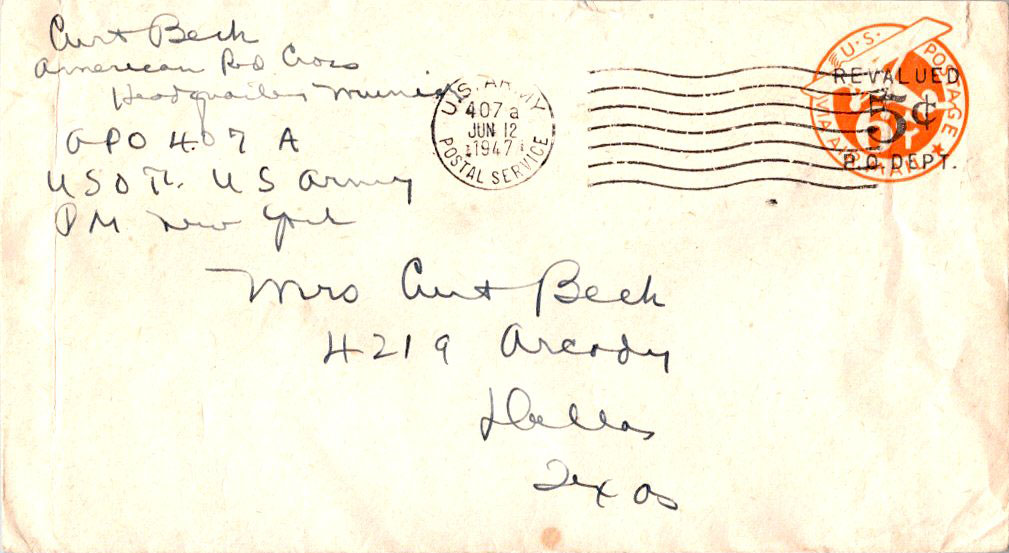 Curt Beck
American Red Cross
Headquarters Munich
APO 407 A
US Army
PM New York
U.S. ARMY
407 a
JUN 12
1947
POSTAL SERVICE
U.S. POSTAGE
REVALUED
5¢
P.O. DEPT.
VIA AIR MAIL
Mrs Curt Beck
4219 Arcady
Dallas
Texas